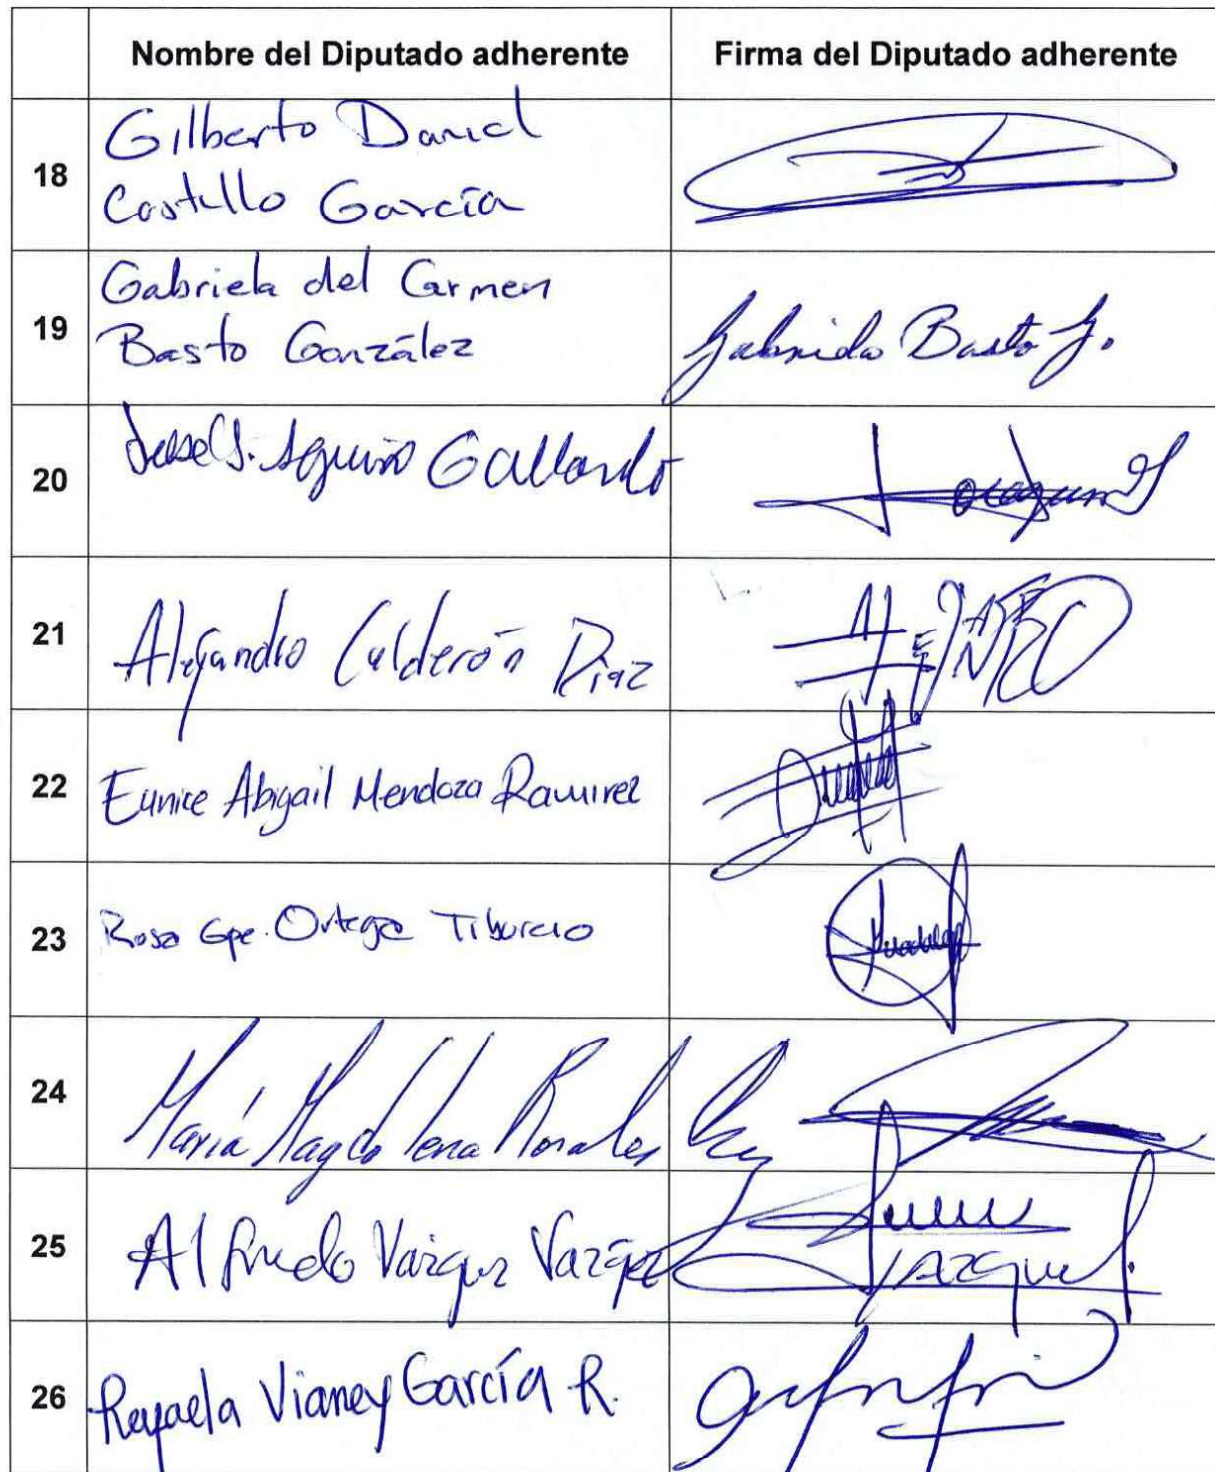 Nombre del Diputado adherente Firma del Diputado adherente
18
Gilberto Daniel
Castillo García
19
Gabriela del Carmen
Basto González
Gabriela Basto G.
20
Gallardo
21
Alejandro Calderón Díaz
ALEJANDRO
22
Eunice Abigail Mendoza Ramirez
23
Rosa Gpe. Ortega Tiburcio
24
María Magdalena Rosales
25
Alfredo Vázquez Vázquez
Vazquez
26
Rafaela Vianey García R.